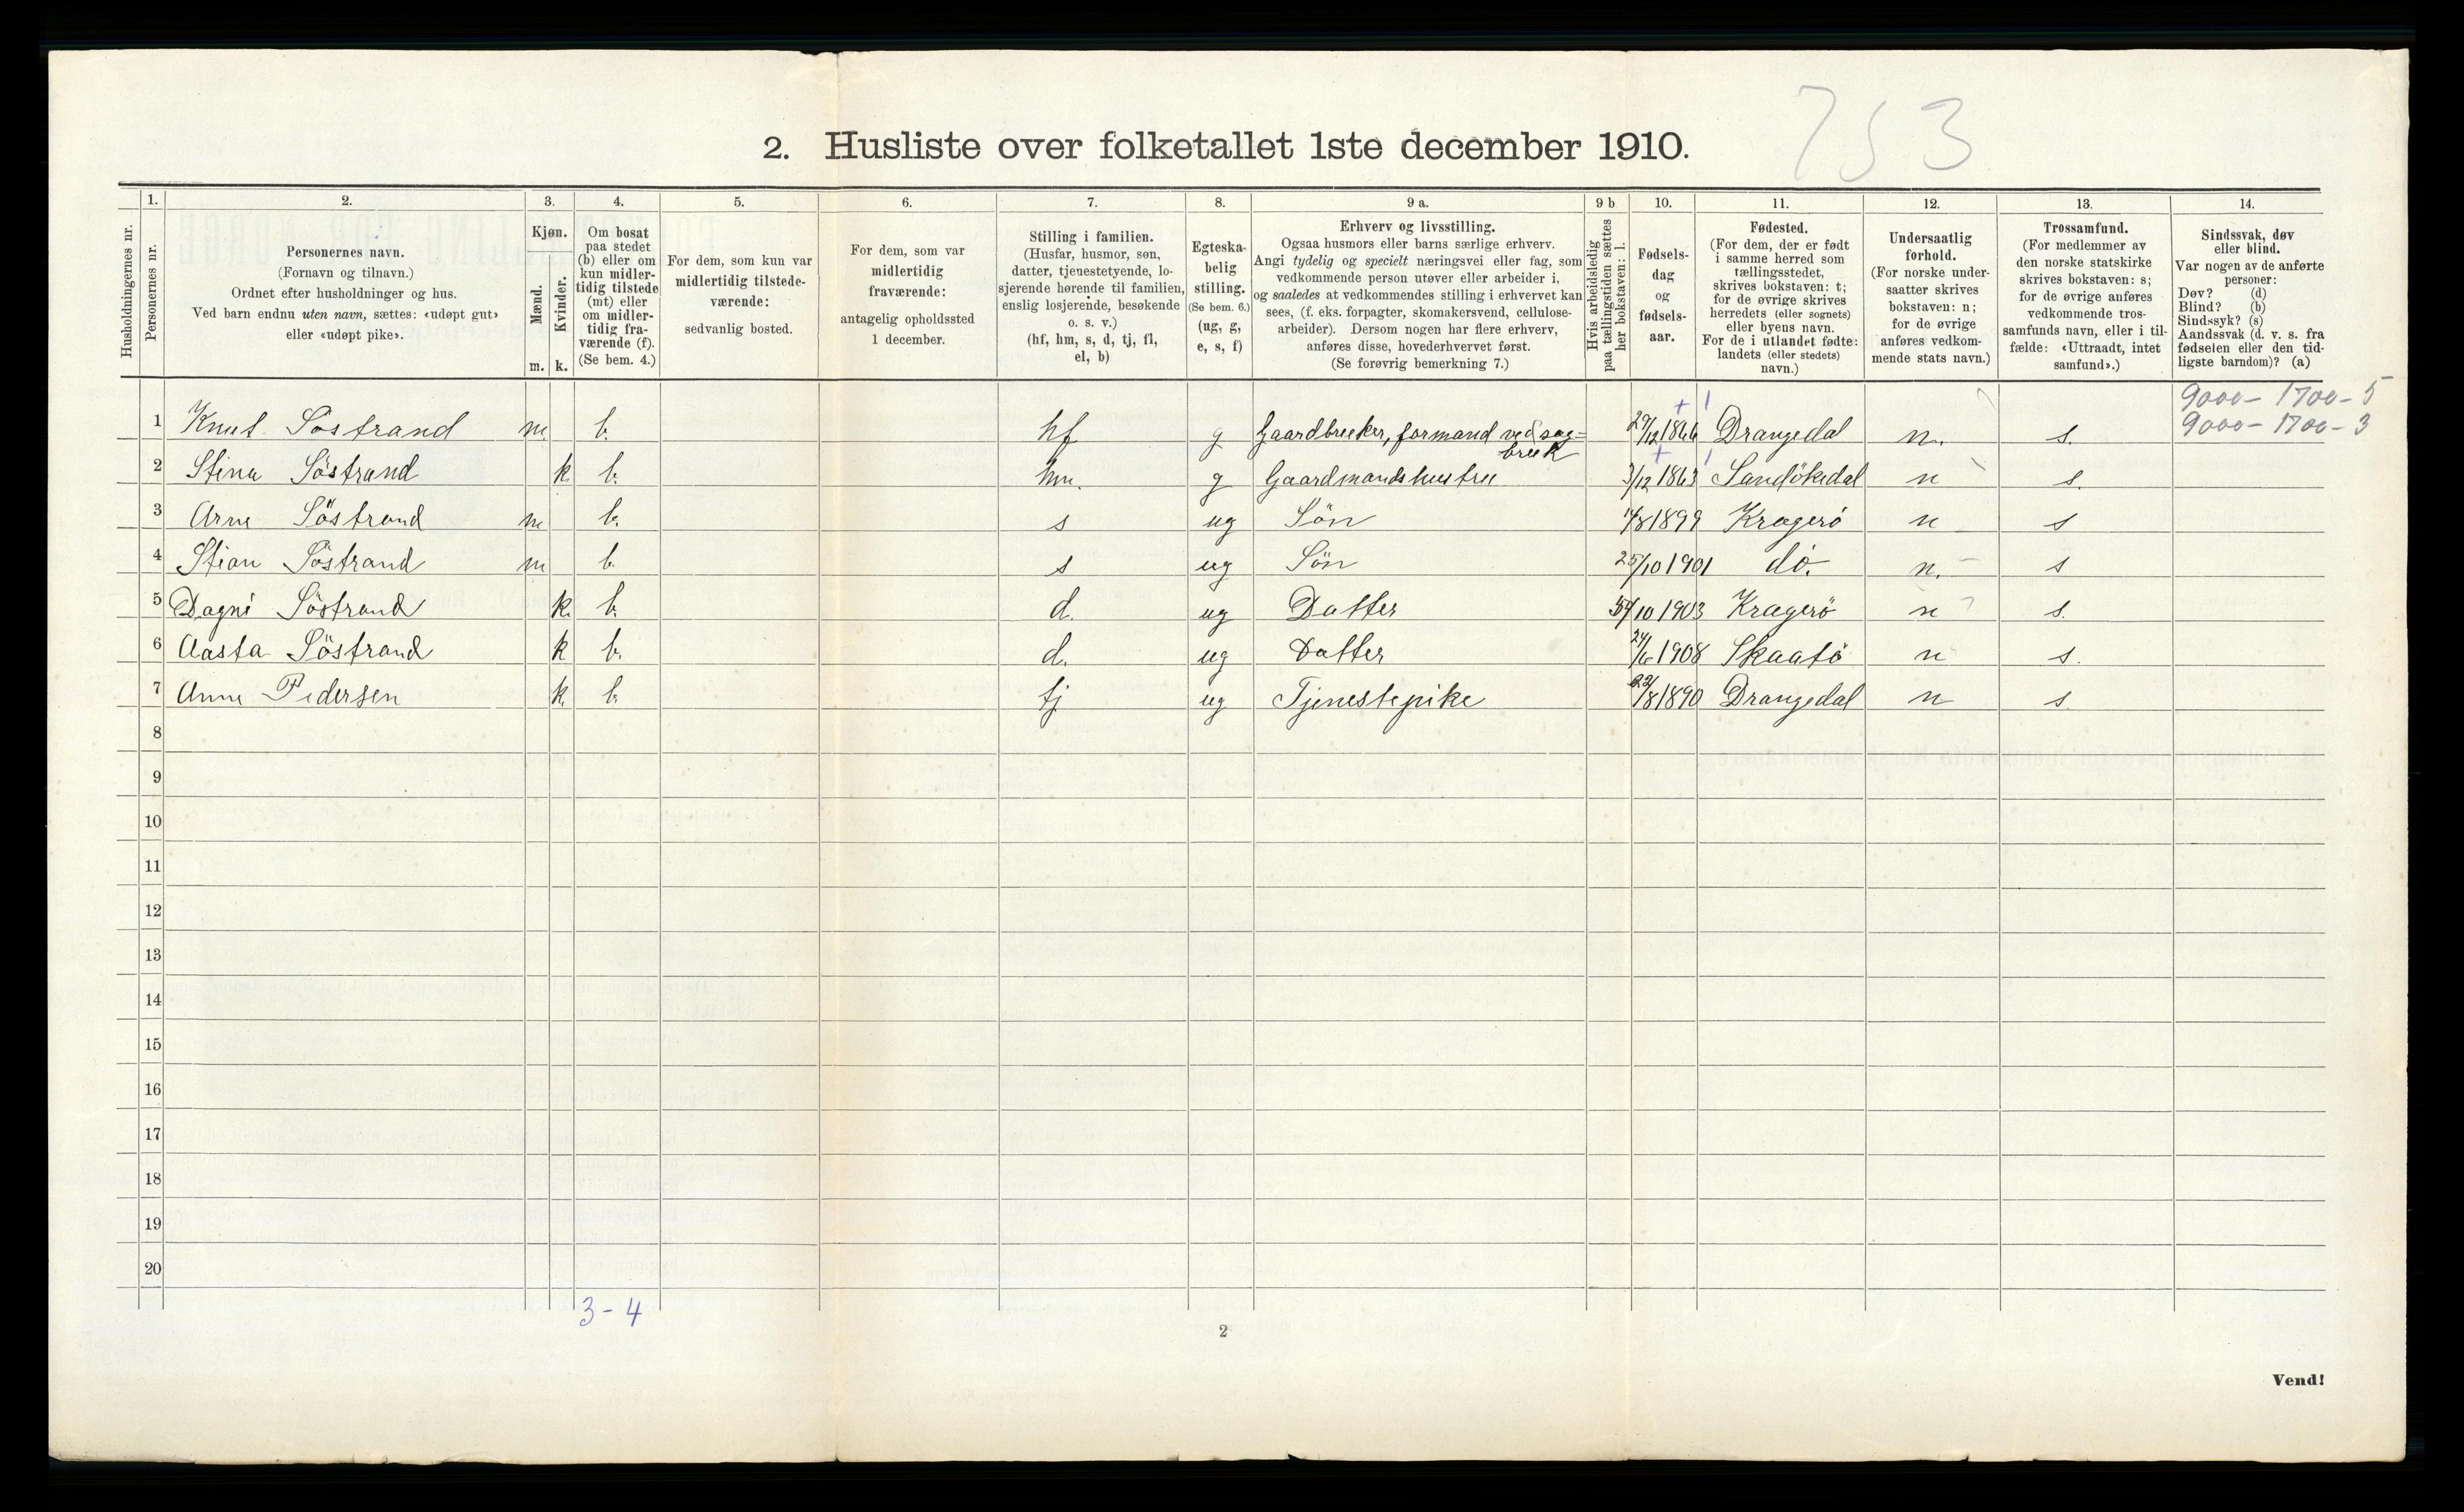 753
2. Husliste over folketallet 1ste december 1910.
1. 2. 3. 4. 5. 6. 7. 8. 9 a. 9 b 10. 11. 12. 13. 14.
Husholdningernes nr.
Personernes nr.
Personernes navn.
(Fornavn og tilnavn.)
Ordnet efter husholdninger og hus.
Ved barn endnu uten navn, sættes: «udøpt gut»
eller «udøpt pike».
Kjøn.
Mænd.
Kvinder.
m. k.
Om bosat
paa stedet
(b) eller om
kun midler-
tidig tilstede
(mt) eller
om midler-
tidig fra-
værende (f).
(Se bem. 4.)
For dem, som kun var
midlertidig tilstede-
værende:
sedvanlig bosted.
For dem, som var
midlertidig
fraværende:
antagelig opholdssted
1 december.
Stilling i familien.
(Husfar, husmor, søn,
datter, tjenestetyende, lo-
sjerende hørende til familien,
enslig losjerende, besøkende
o. s. v.)
(hf, hm, s, d, tj, fl,
el, b)
Egteska-
belig
stilling.
(Se bem. 6.)
(ug, g,
e, s, f)
Erhverv og livsstilling.
Ogsaa husmors eller barns særlige erhverv.
Angi tydelig og specielt næringsvei eller fag, som
vedkommende person utøver eller arbeider i,
og saaledes at vedkommendes stilling i erhvervet kan
sees, (f. eks. forpagter, skomakersvend, cellulose-
arbeider). Dersom nogen har flere erhverv,
anføres disse, hovederhvervet først.
(Se forøvrig bemerkning 7.)
Hvis arbeidsledig
paa tællingstiden sættes
her bokstaven: l.
Fødsels-
dag
og
fødsels-
aar.
Fødested.
(For dem, der er født
i samme herred som
tællingsstedet,
skrives bokstaven: t;
for de øvrige skrives
herredets (eller sognets)
eller byens navn.
For de i utlandet fødte:
landets (eller stedets)
navn.)
Undersaatlig
forhold.
(For norske under-
saatter skrives
bokstaven: n;
for de øvrige
anføres vedkom-
mende stats navn.)
Trossamfund.
(For medlemmer av
den norske statskirke
skrives bokstaven: s;
for de øvrige anføres
vedkommende tros-
samfunds navn, eller i til-
fælde: «Uttraadt, intet
samfund».)
Sindssvak, døv
eller blind.
Var nogen av de anførte
personer:
Døv? (d)
Blind? (b)
Sindssyk? (s)
Aandssvak (d. v. s. fra
fødselen eller den tid-
ligste barndom)? (a)
9000 - 1700 - 5
9000 - 1700 - 3
1 Knut Söstrand m. b. hf g Gaardbruker, formand ved sag=
bruk 27/12 1866 Drangedal n. s.
2 Stina Söstrand k b. hm. g Gaardmandshustru 3/12 1863 Sandökedal n s.
3 Arne Söstrand m b. s ug Sön 1899 Kragerö n s
4 Stian Söstrand m b. s ug Sön 25/10 1901 do. n. s
5 Dagni Söstrand k. b. d. ug Datter 1903 Kragerö n s.
6 Aasta Söstrand k b. d. ug Datter 1908 Skaatö n s.
7 Anne Pedersen k. b. tj ug Tjenestepike 22/8 1890 Drangedal n s.
8
9
10
11
12
13
14
15
16
17
18
19
20
3-4
2
Vend!